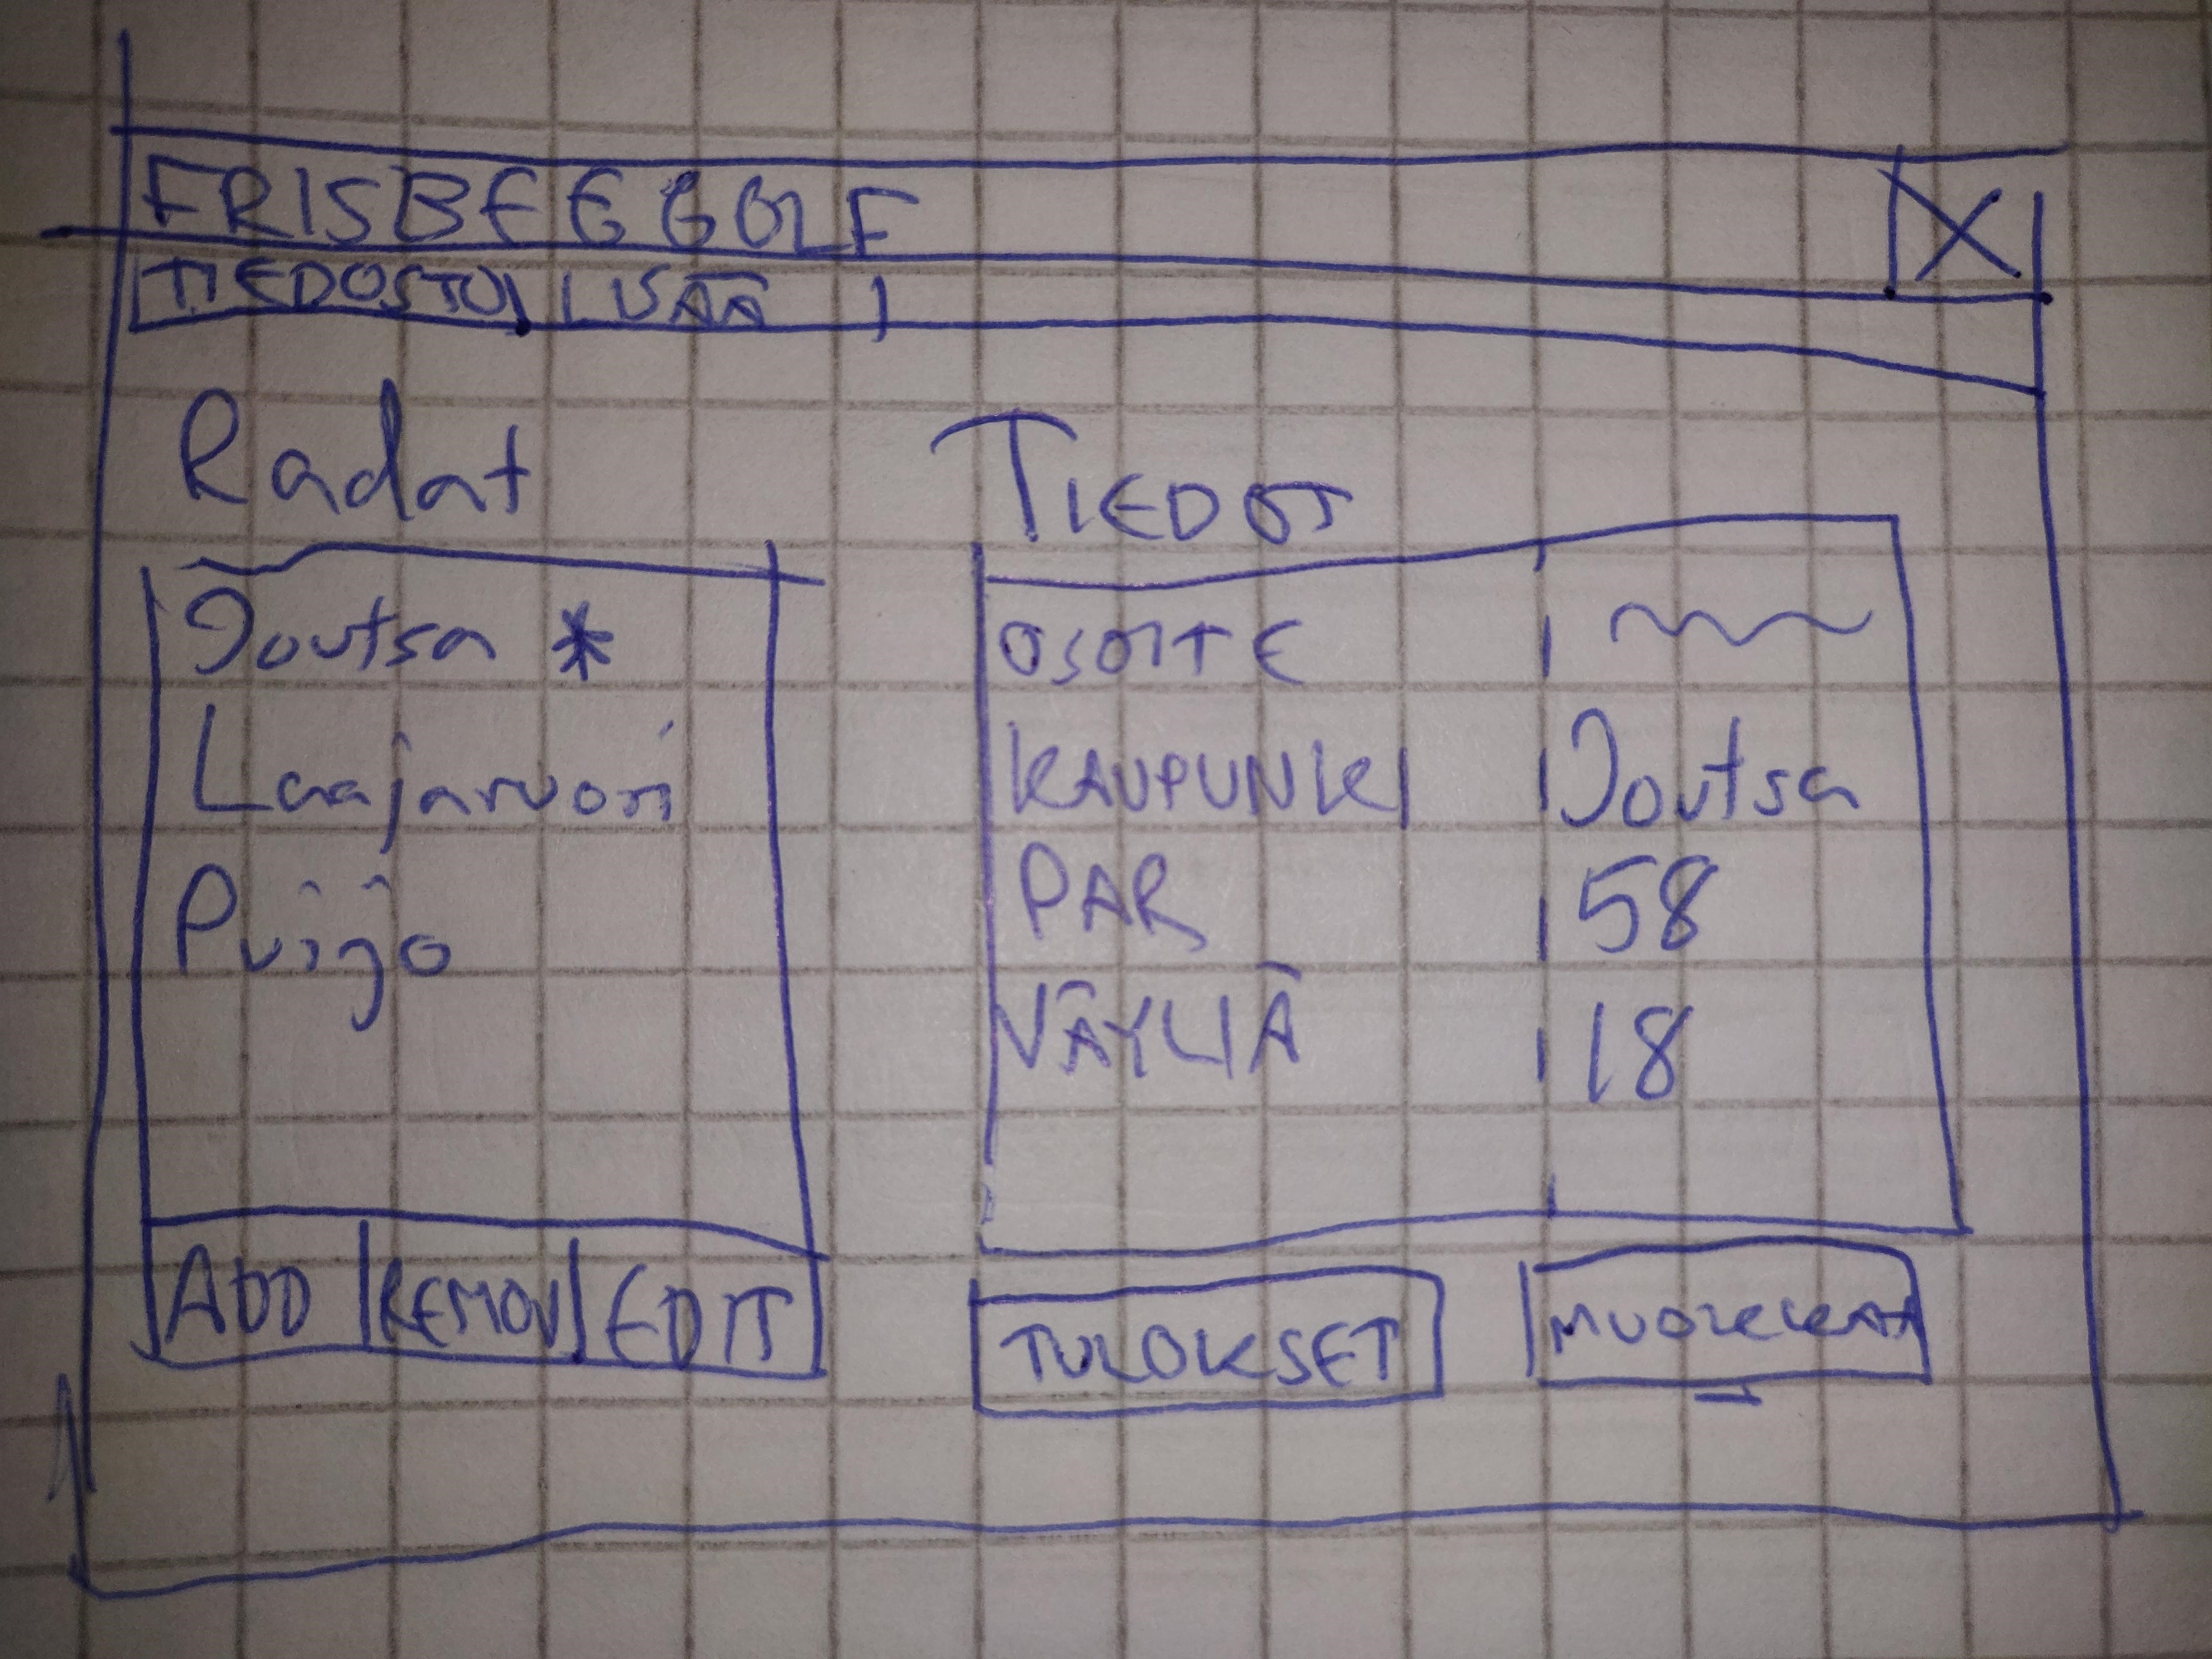 FRISBEEGOLF X
TIEDOSTO LISÄÄ
Radat
Joutsa *
Laajavuori
Puijo
ADD REMOV EDIT
TIEDOT
OSOITE
KAUPUNKI Joutsa
PAR 58
VÄYLIÄ 18
TULOKSET